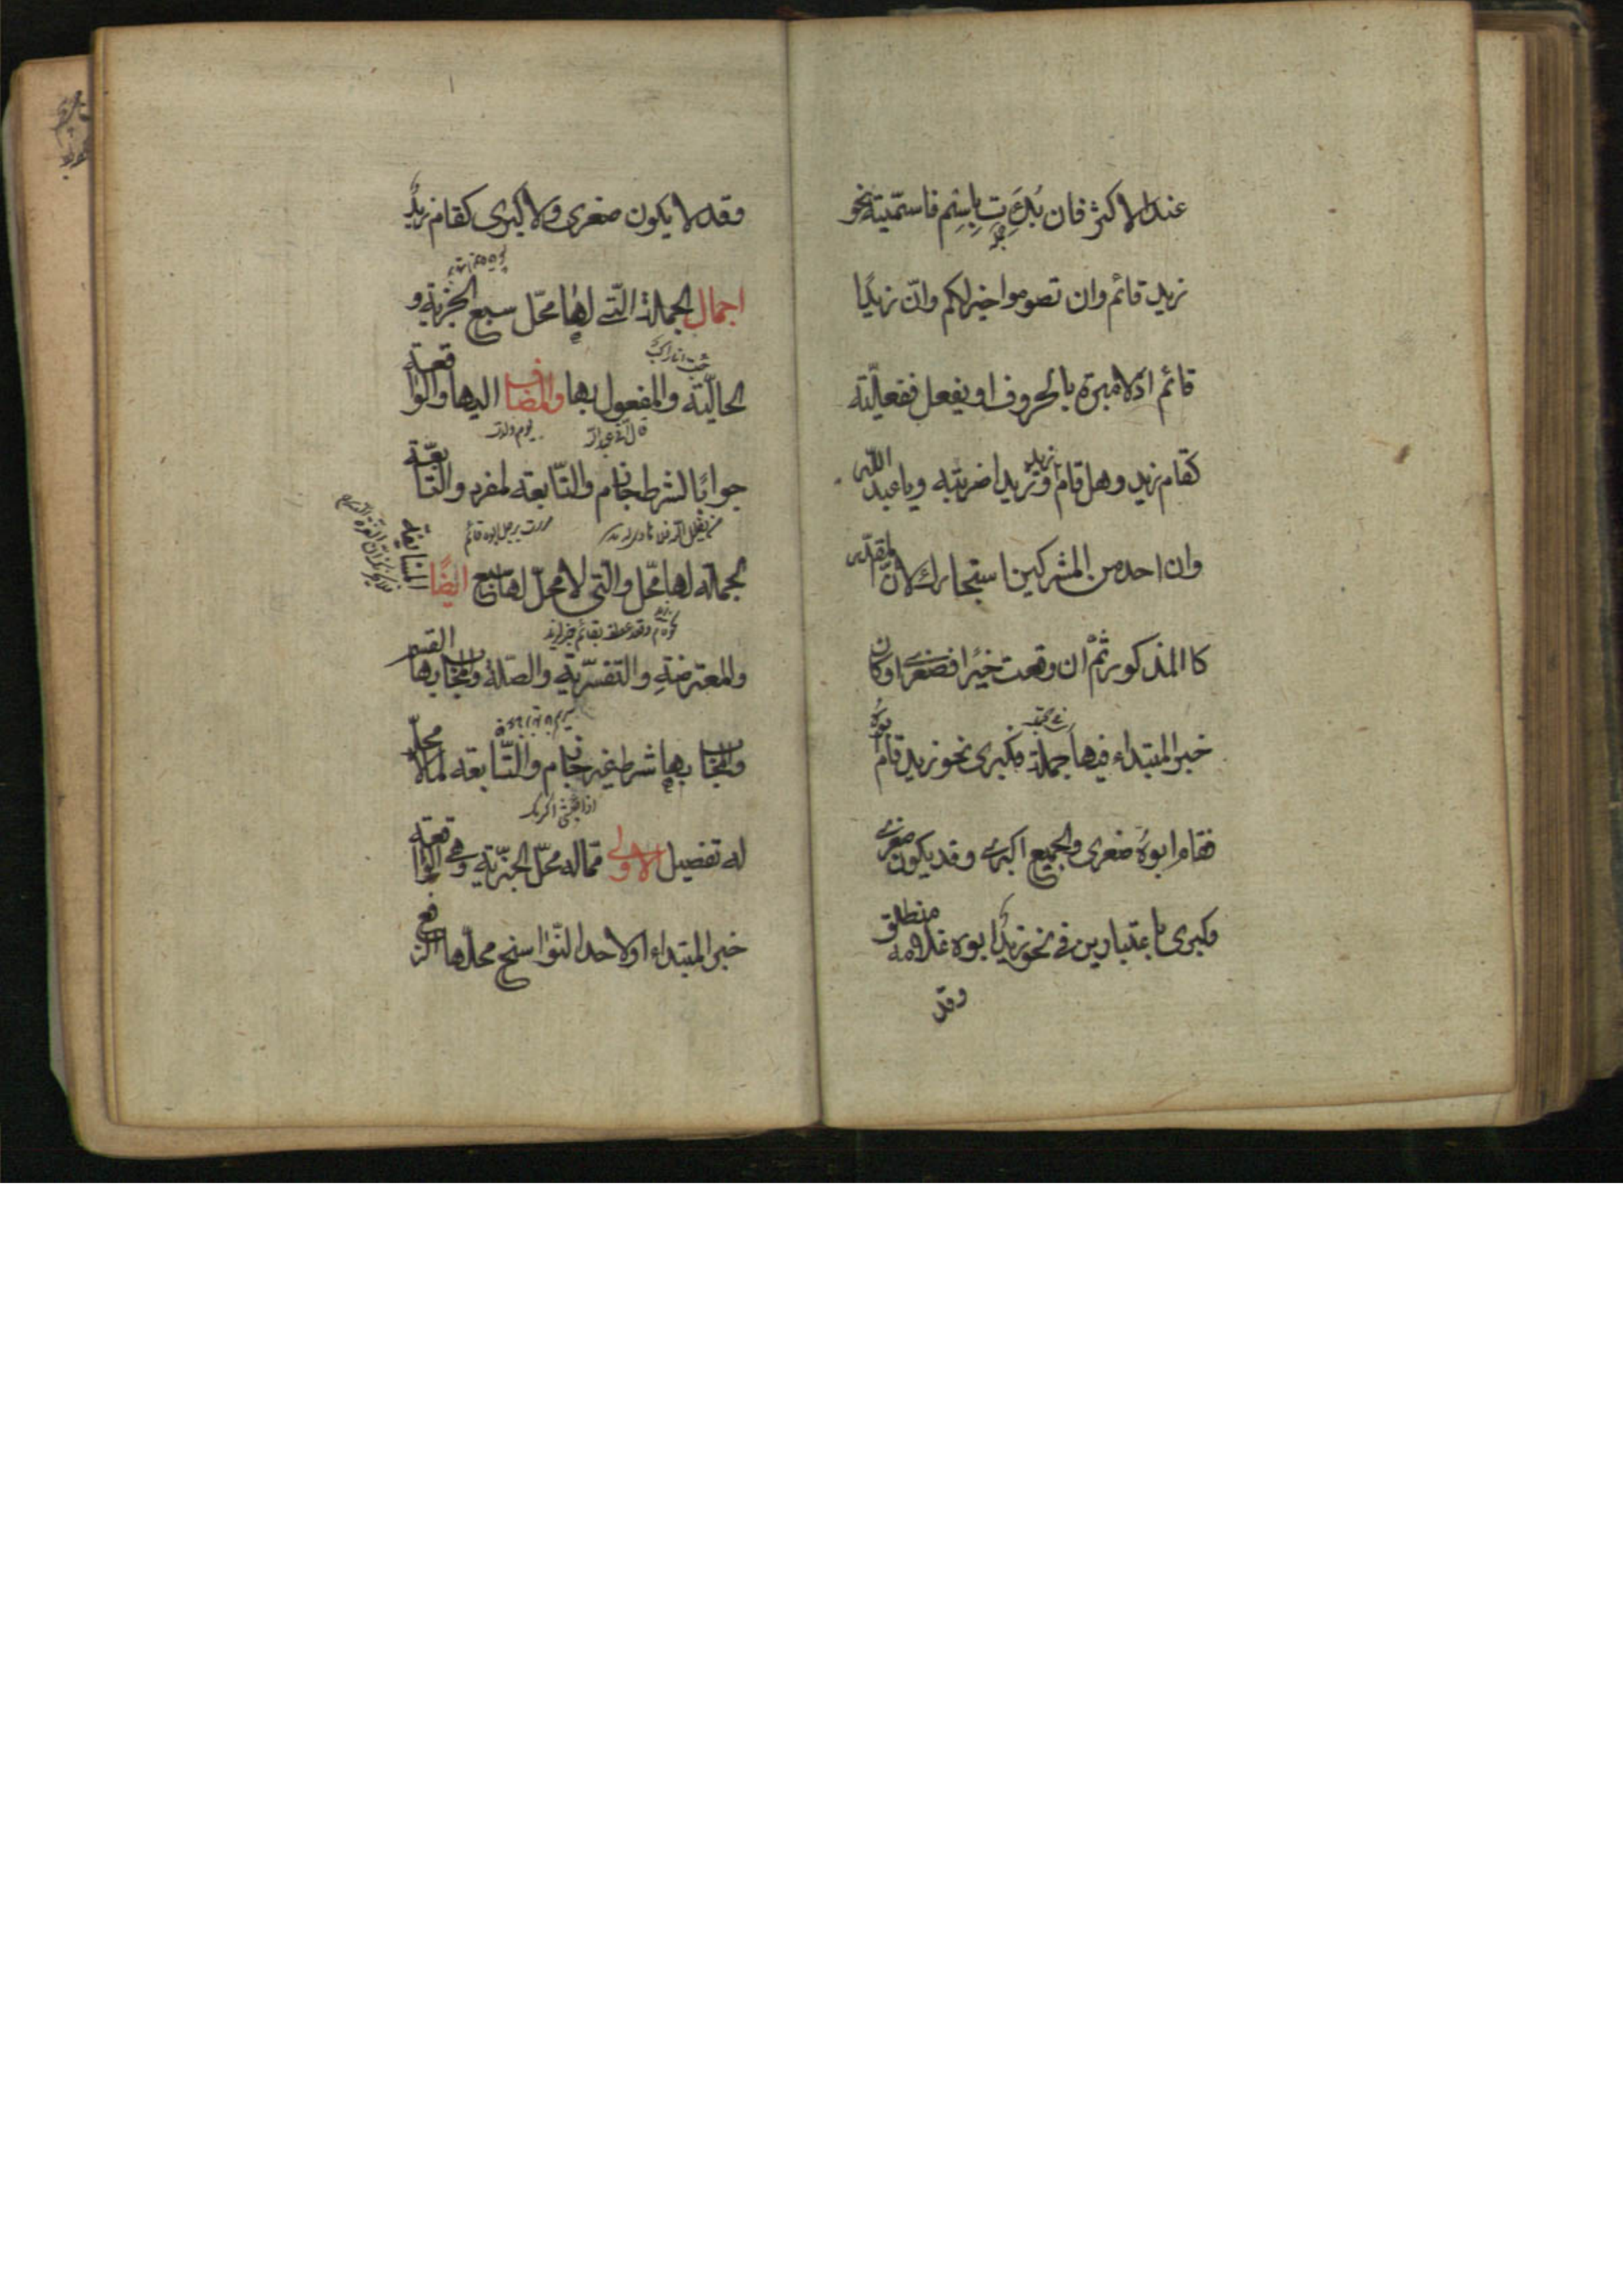 عند الاكثر فان بُدِئَت بِاسْمٍ فاسمّيته نحو
زيد قائم وان تصوموا خير لكم وانّ زيدًا
قائم اذ لا عبرة بالحروف او بفعل ففعليّة
كقام زيد وهل قام زيد وزيدا ضربته ويا عبد اللّه
وان احد من المشركين استجارك لانّ المقدّر
كا المذكور ثمّ ان وقعت خبرًا فصغرى او كان
خبر المبتداء فيها جملة فكبرى نحو زيد قام ابوه
فقام ابوه صغرى والجميع اكبرى وقد يكون صغرى
وكبرى باعتبارين فى نحو زيدٌ ابوه غلامه منطلق
وقد
وقد لا يكون صغرى ولا كبرى كقام زيدٌ
اجمال الجملة الّتى لها محّل سبع الخبريّة و
الحاليّة والمفعول بها والمضاف اليها والواقعة
جوابًا لشرط جازم والتّابعة لمفرد والتّابعة
مررت برجل ابوه قائم
لجملة لها محّل والتى لا محلّ لها سبع ايضًا
والمعترضةِ والتفسّرية والصّلة والمجاب بها القسم
والمجاب بها شرط غير جازم والتّابعة لما لا محلّ
له تفصيل الاولى ممّا له محّل الخبّرية وهى الواقعة
خبر المبتداء اولاحد النّواسخ محلّها الرفع